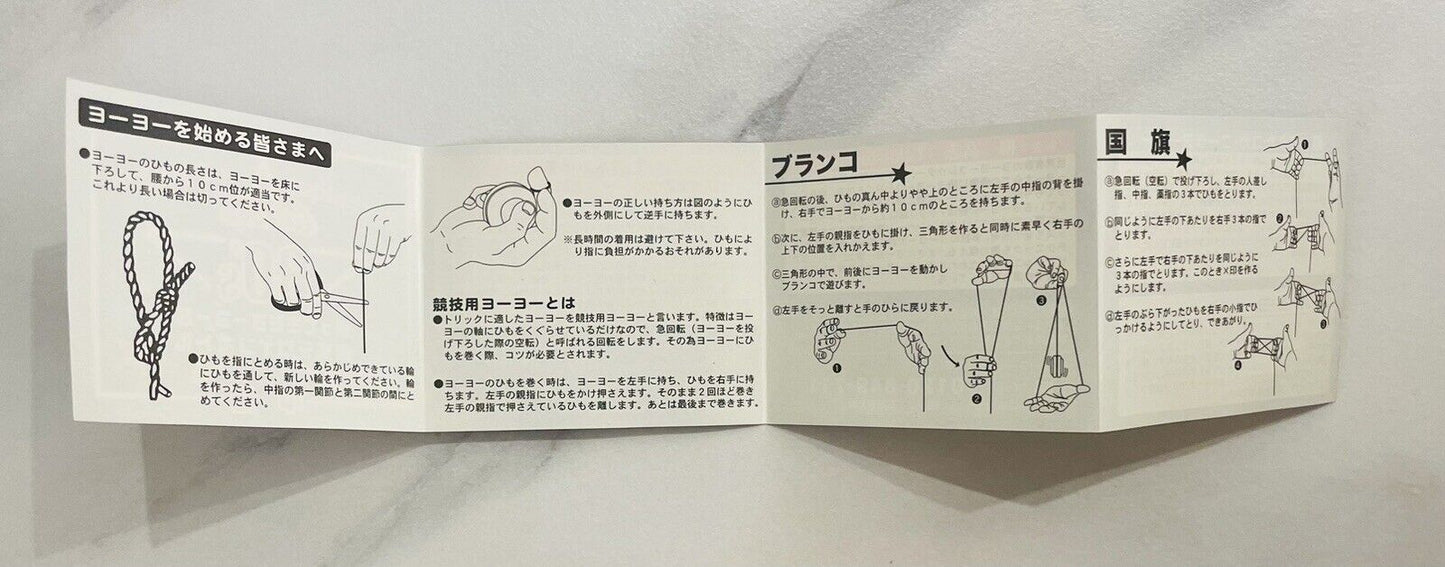 ヨーヨーを始める皆さまへ
●ヨーヨーのひもの長さは、ヨーヨーを床に
下ろして、腰から10cm位が適当です。
これより長い場合は切ってください。
●ひもを指にとめる時は、あらかじめできている輪
にひもを通して、新しい輪を作ってください。輪
を作ったら、中指の第一関節と第二関節の間にと
めてください。
●ヨーヨーの正しい持ち方は図のようにひ
もを外側にして逆手に持ちます。
※長時間の着用は避けて下さい。ひもによ
り指に負担がかかるおそれがあります。
競技用ヨーヨーとは
●トリックに適したヨーヨーを競技用ヨーヨーと言います。特徴はヨー
ヨーの軸にひもをくぐらせているだけなので、急回転（ヨーヨーを投
げ下ろした際の空転）と呼ばれる回転をします。その為ヨーヨーにひ
もを巻く際、コツが必要とされます。
●ヨーヨーのひもを巻く時は、ヨーヨーを左手に持ち、ひもを右手に持
ちます。左手の親指にひもをかけ押さえます。そのまま2回ほど巻き
左手の親指で押さえているひもを離します。あとは最後まで巻きます。
ブランコ
ⓐ急回転の後、ひもの真ん中よりやや上のところに左手の中指の背を掛
け、右手でヨーヨーから約10cmのところを持ちます。
ⓑ次に、左手の親指をひもに掛け、三角形を作ると同時に素早く右手の
上下の位置を入れかえます。
ⓒ三角形の中で、前後にヨーヨーを動かし
ブランコで遊びます。
ⓓ左手をそっと離すと手のひらに戻ります。
❶
❷
❸
国旗
ⓐ急回転（空転）で投げ下ろし、左手の人差し
指、中指、薬指の3本でひもをとります。
ⓑ同じように左手の下あたりを右手3本の指で
とります。
ⓒさらに左手で右手の下あたりを同じように
3本の指でとります。このとき×印を作る
ようにします。
ⓓ左手のぶら下がったひもを右手の小指でひ
っかけるようにしてとり、できあがり。
❶
❷
❸
❹